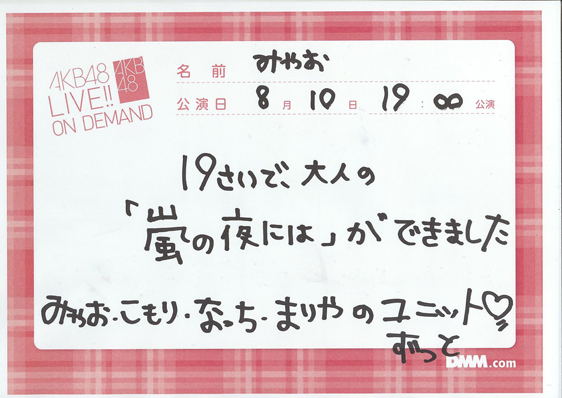 AKB48
LIVE!!
ON DEMAND
AKB
48
名前 みゃお
公演日 8月10日 19:00公演
19さいで、大人の
「嵐の夜には」ができました
みゃお・こもり・なっち・まりやのユニット♡
ずっと
DMM.com